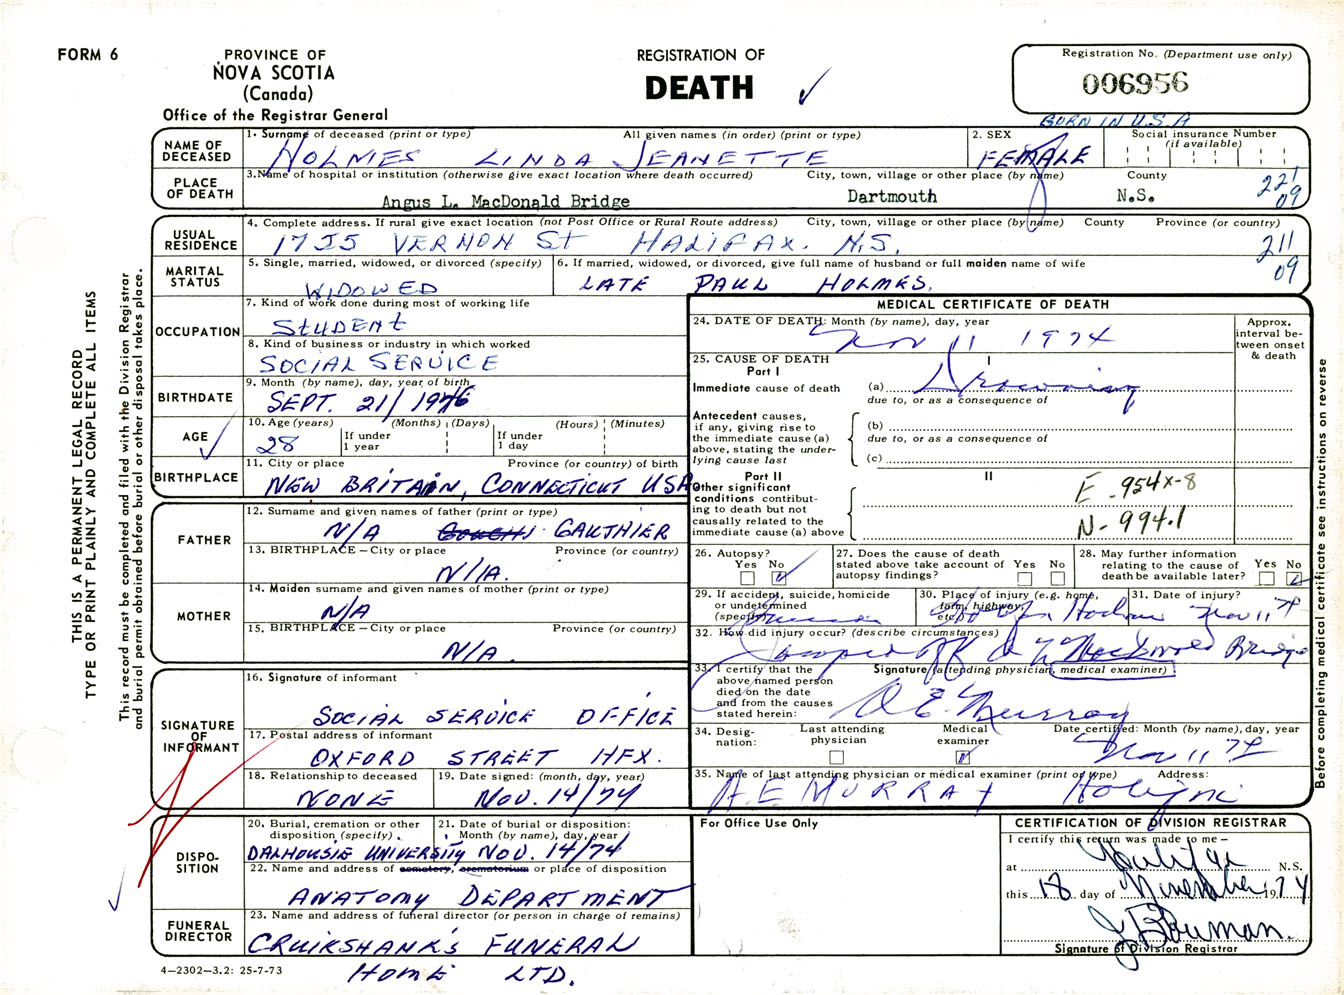 FORM 6
PROVINCE OF
NOVA SCOTIA
(Canada)
Office of the Registrar General
REGISTRATION OF
DEATH
Registration No. (Department use only)
006956
BORN IN U.S.A
NAME OF DECEASED
1. Surname of deceased (print or type) All given names (in order) (print or type)
HOLMES LINDA JEANETTE
2. SEX
FEMALE
Social insurance Number
(if available)
PLACE OF DEATH
3. Name of hospital or institution (otherwise give exact location where death occurred) City, town, village or other place (by name) County
Angus L. MacDonald Bridge Dartmouth N.S.
221
09
USUAL RESIDENCE
4. Complete address. If rural give exact location (not Post Office or Rural Route address) City, town, village or other place (by name) County Province (or country)
1735 VERNON St HALIFAX. N.S.
211
09
MARITAL STATUS
5. Single, married, widowed, or divorced (specify)
WIDOWED
6. If married, widowed, or divorced, give full name of husband or full maiden name of wife
LATE PAUL HOLMES.
OCCUPATION
7. Kind of work done during most of working life
STUDENT
8. Kind of business or industry in which worked
SOCIAL SERVICE
BIRTHDATE
9. Month (by name), day, year of birth
SEPT. 21/1946
AGE
10. Age (years) (Months) (Days) (Hours) (Minutes)
28 If under 1 year If under 1 day
BIRTHPLACE
11. City or place Province (or country) of birth
NEW BRITAIN, CONNECTICUT USA
FATHER
12. Surname and given names of father (print or type)
N/A GAUTHIER
13. BIRTHPLACE — City or place Province (or country)
N/A.
MOTHER
14. Maiden surname and given names of mother (print or type)
N/A
15. BIRTHPLACE — City or place Province (or country)
N/A.
SIGNATURE OF INFORMANT
16. Signature of informant
SOCIAL SERVICE OFFICE
17. Postal address of informant
OXFORD STREET HFX.
18. Relationship to deceased
NONE
19. Date signed: (month, day, year)
NOV. 14/74
DISPOSITION
20. Burial, cremation or other disposition (specify)
DALHOUSIE UNIVERSITY
21. Date of burial or disposition: Month (by name), day, year
NOV. 14/74
22. Name and address of cemetery, crematorium or place of disposition
ANATOMY DEPARTMENT
FUNERAL DIRECTOR
23. Name and address of funeral director (or person in charge of remains)
CRUIKSHANK'S FUNERAL
HOME LTD.
4—2302—3.2: 25-7-73
MEDICAL CERTIFICATE OF DEATH
24. DATE OF DEATH: Month (by name), day, year
Nov 11 1974
Approx. interval between onset & death
25. CAUSE OF DEATH
Part I
I
Immediate cause of death (a) Drowning
due to, or as a consequence of
Antecedent causes, if any, giving rise to the immediate cause (a) above, stating the underlying cause last
(b)
due to, or as a consequence of
(c)
Part II
II
Other significant conditions contributing to death but not causally related to the immediate cause (a) above
E - 954X-8
N - 994.1
26. Autopsy? Yes No
27. Does the cause of death stated above take account of autopsy findings? Yes No
28. May further information relating to the cause of death be available later? Yes No
29. If accident, suicide, homicide or undetermined (specify)
30. Place of injury (e.g. home, farm, highway, etc.)
31. Date of injury?
Nov 11 74
32. How did injury occur? (describe circumstances)
Jumped off A L MacDonald Bridge
33. I certify that the above named person died on the date and from the causes stated herein:
Signature (attending physician, medical examiner)
A E Murray
34. Designation: Last attending physician Medical examiner
Date certified: Month (by name), day, year
Nov 11 74
35. Name of last attending physician or medical examiner (print or type) Address:
A.E MURRAY
For Office Use Only
CERTIFICATION OF DIVISION REGISTRAR
I certify this return was made to me —
at Halifax N.S.
this 18 day of November 1974
Signature of Division Registrar
THIS IS A PERMANENT LEGAL RECORD
TYPE OR PRINT PLAINLY AND COMPLETE ALL ITEMS
This record must be completed and filed with the Division Registrar
and burial permit obtained before burial or other disposal takes place.
Before completing medical certificate see instructions on reverse